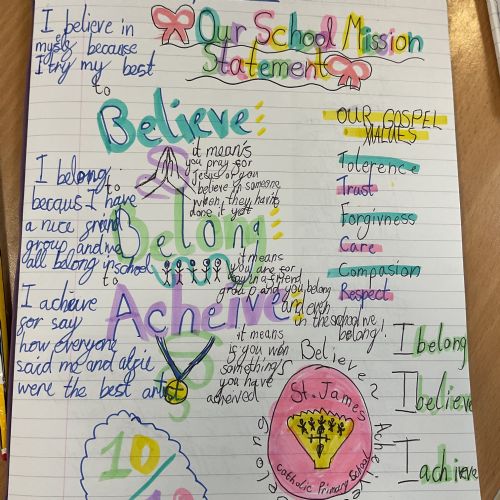 Our School Mission
Statement
I believe in
myself because
I try my best
to
Believe
it means
you pray for
Jesus or you
believe in someone
when they havn't
done it yet
I belong
becaus I have
a nice
group and we
all belong in school
to
Belong
it means
you are for
say in a friend
group and you belong
and even
in the school we
belong!
to
Acheive
I acheive
for say
how everyone
said me and
were the best artist
it means
is you won
something's
you have
acheived
OUR GOSPEL
VALUES
Tolerence
Trust
Forgivness
Care
Compasion
Respect
I belong
I believe
I achieve
Believe
Belong
St. James
Catholic Primary School
10
10